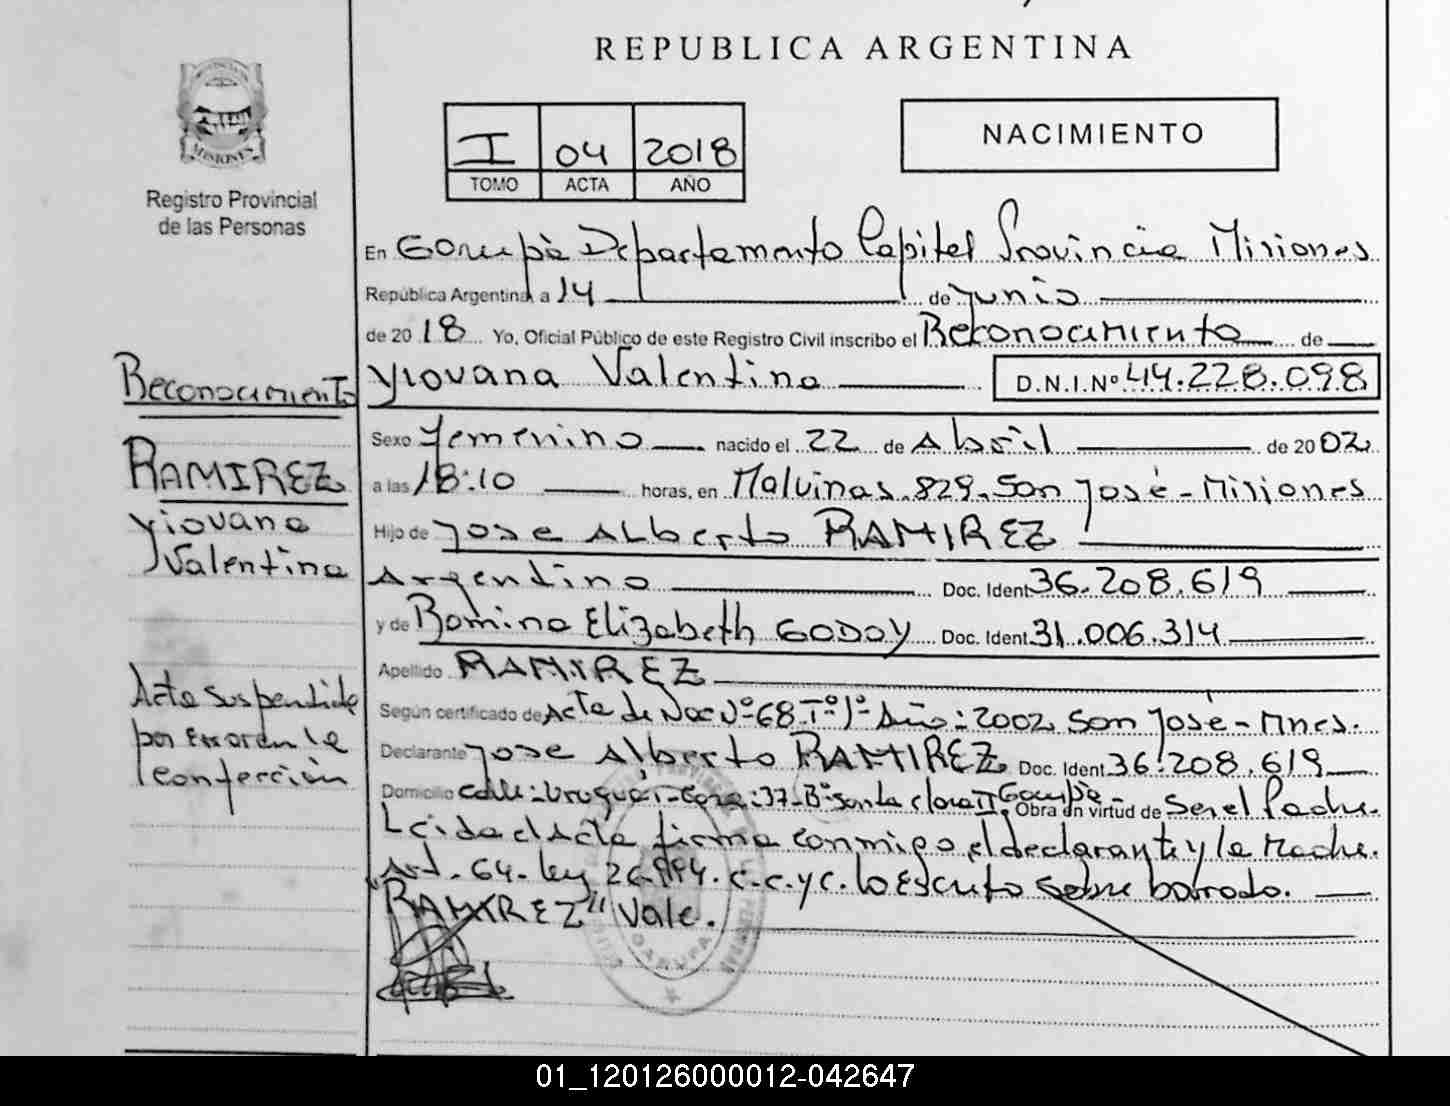 REPUBLICA ARGENTINA
I 04 2018
TOMO ACTA AÑO
NACIMIENTO
MISIONES
Registro Provincial
de las Personas
En Garupá Departamento Capital Provincia Misiones
República Argentina a 14 de Junio
de 2018 Yo, Oficial Público de este Registro Civil inscribo el Reconocimiento de
Yiovana Valentina D.N.I.Nº 44.228.098
Sexo Femenino nacido el 22 de Abril de 2002
a las 18:10 horas, en Malvinas 829 San José - Misiones
Hijo de Jose Alberto RAMIREZ
Argentino Doc. Ident 36.208.619
y de Romina Elizabeth GODOY Doc. Ident. 31.006.314
Apellido RAMIREZ
Según certificado de Acta de Nac Nº 68 Tº 1º Año: 2002 San José - Mnes.
Declarante Jose Alberto RAMIREZ Doc. Ident. 36.208.619
Domicilio calle: Uruguái - Casa: 37 - Bº Santa Clara II Garupá - Obra en virtud de Ser el Padre.
Leida el Acta firma conmigo el declarante y la Madre.
Art. 64. Ley 26.994. C.C.y C. lo Escrito sobre borrado.
RAMIREZ" Vale.
Reconocimiento
RAMIREZ
Yiovana
Valentina
Acta suspendida
por Error en la
confección
GARUPA
01_120126000012-042647